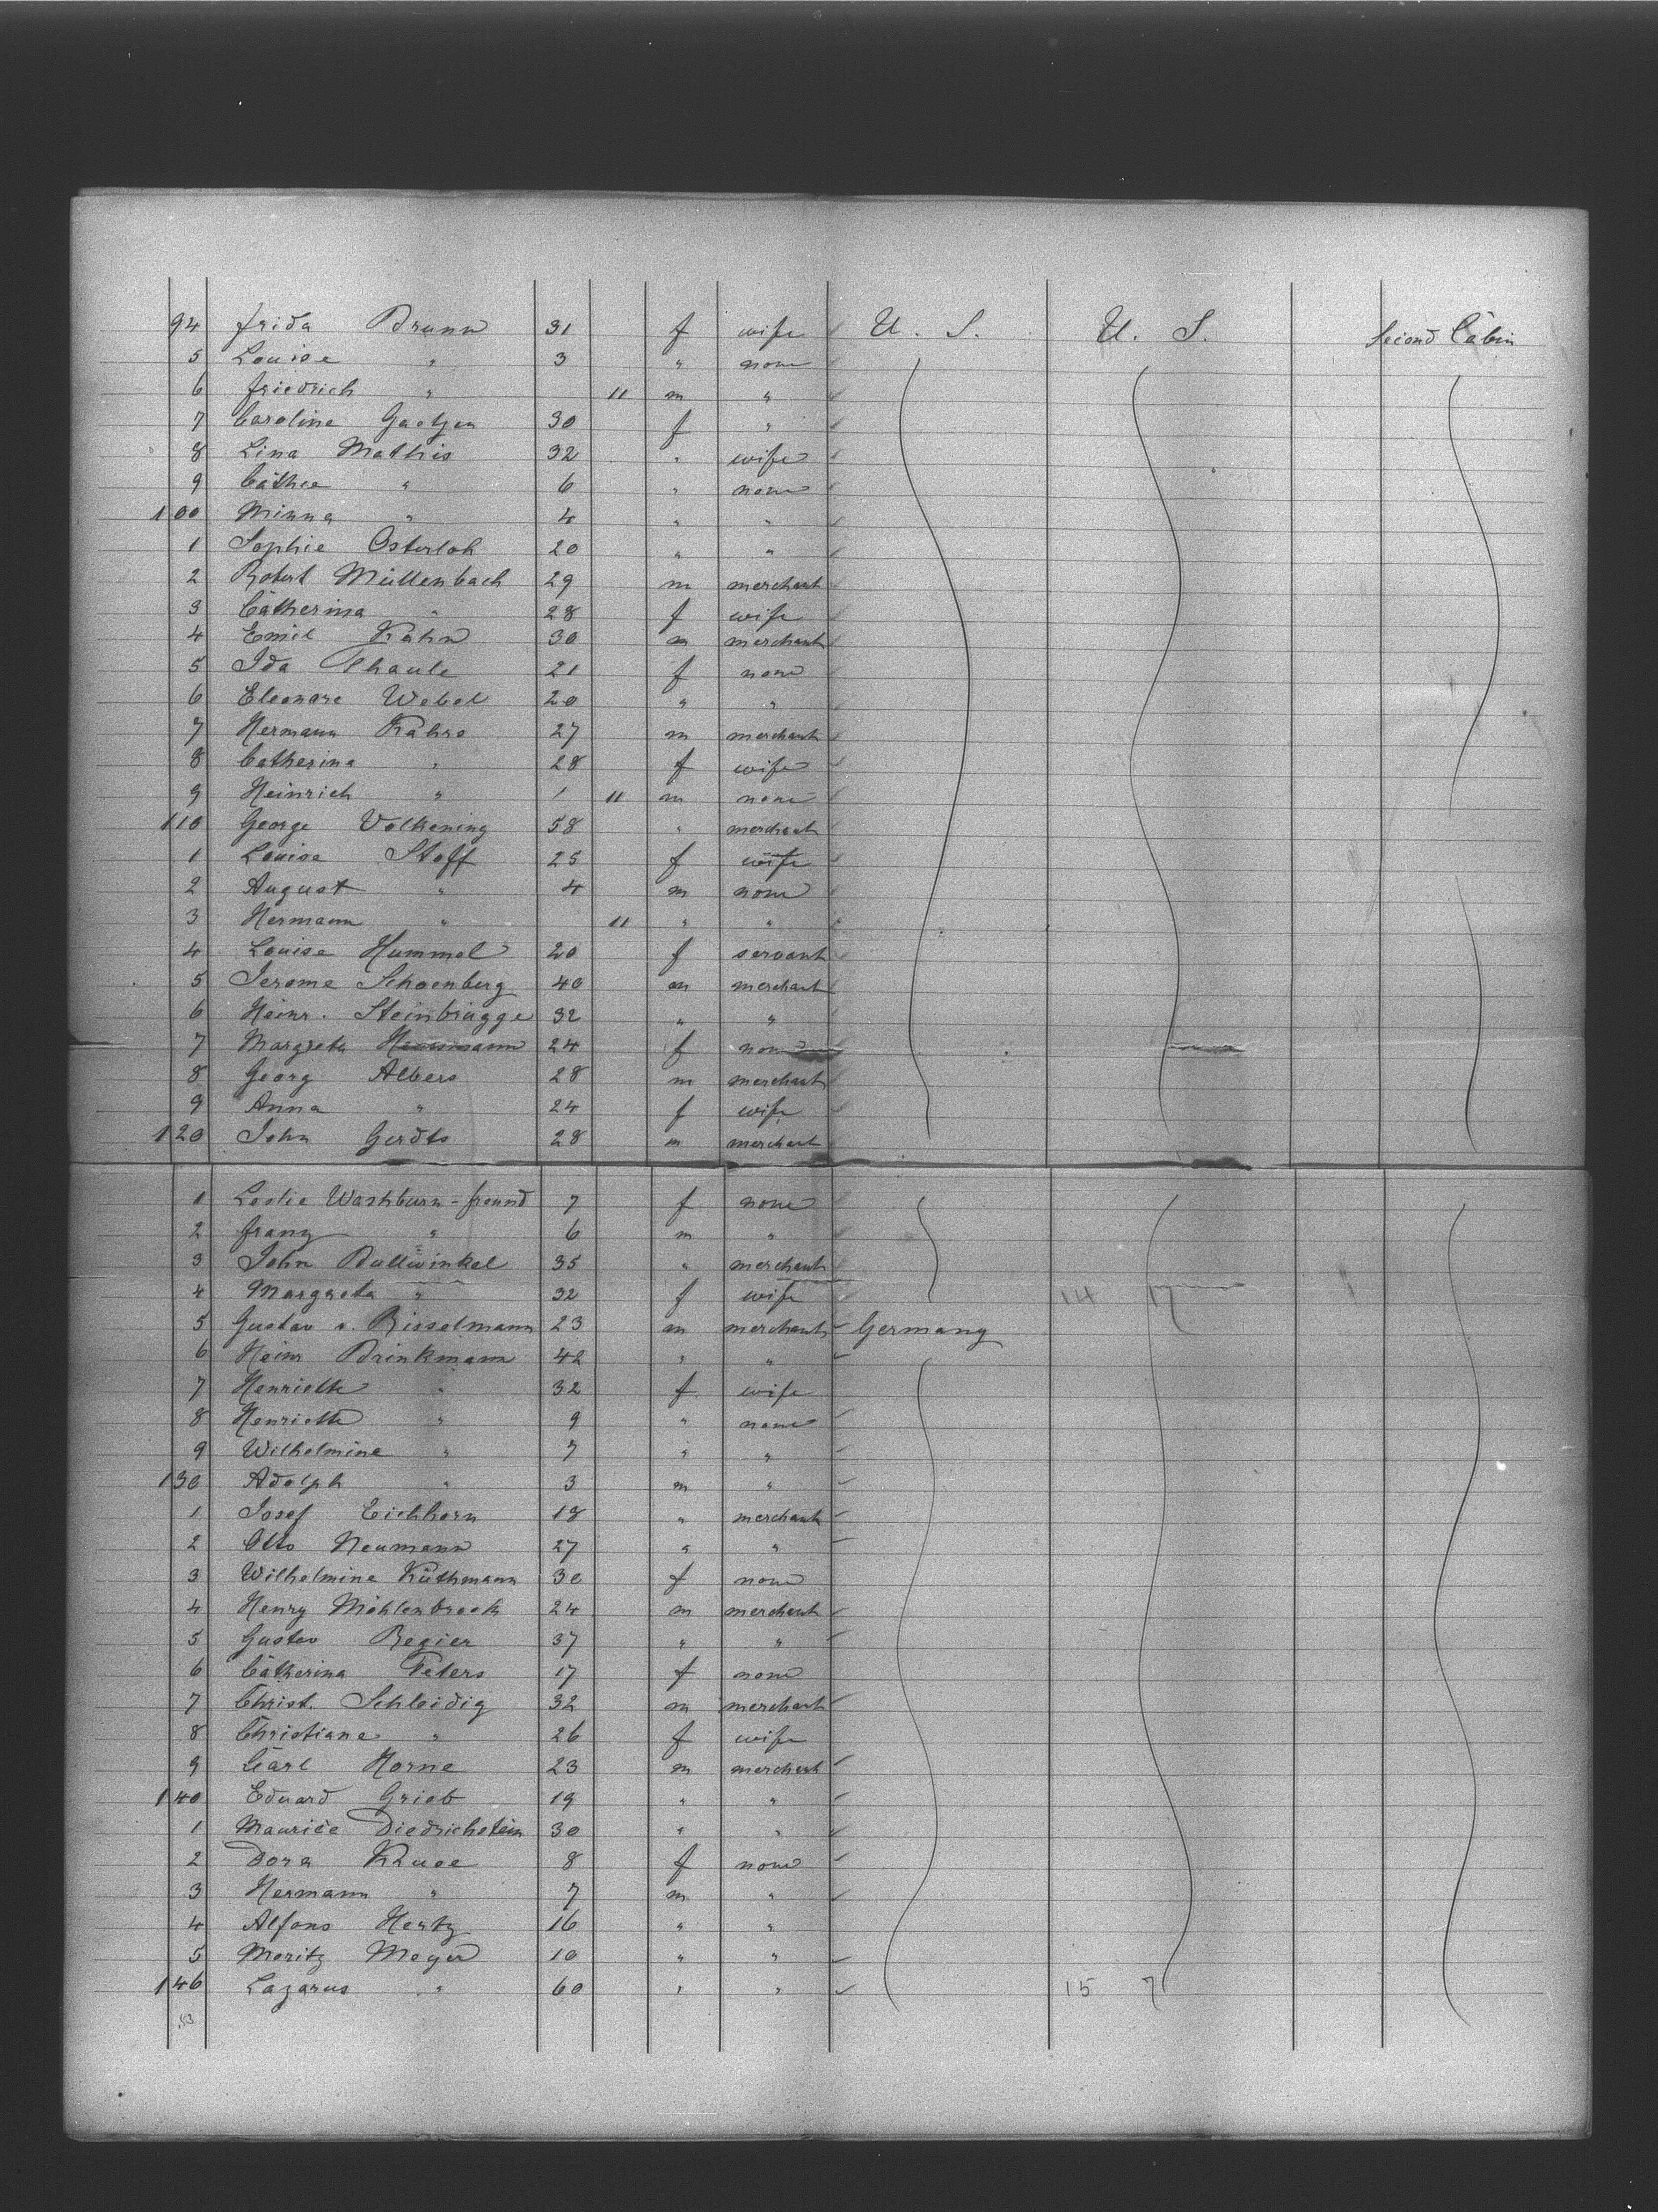 94 Frida Brunn 31 f wife U. S. U. S. Second Cabin
5 Louise " 3 " none
6 Friedrich " 11 m "
7 Caroline Gaetjen 30 f "
8 Lina Mathis 32 " wife
9 Cäthe " 6 " none
100 Minna " 4 " "
1 Sophie Osterloh 20 " "
2 Robert Müllenbach 29 m merchant
3 Catherina " 28 f wife
4 Emil Kahn 30 m merchant
5 Ida 21 f none
6 Eleonore Webel 20 " "
7 Hermann Kahrs 27 m merchant
8 Catherina " 28 f wife
9 Heinrich " 1 11 m none
110 George Volkening 58 " merchant
1 Louise Stoff 25 f wife
2 August " 4 m none
3 Hermann " 11 " "
4 Louise Hummel 20 f servant
5 Jerome Schoenberg 40 m merchant
6 Heinr. Steinbrügge 32 " "
7 Margreta 24 f none
8 Georg Albers 28 m merchant
9 Anna " 24 f wife
120 John Gerdts 28 m merchant
1 Leslie Washburn-Freund 7 f none
2 Franz " 6 m "
3 John Bullwinkel 35 " merchant
4 Margreta " 32 f wife 14 17
5 Gustav v. Bisselmann 23 m merchant Germany
6 Heinr Brinkmann 42 " "
7 Henriette " 32 f wife
8 Henriette " 9 " none
9 Wilhelmine " 7 " "
130 Adolph " 3 m "
1 Josef Eichhorn 18 " merchant
2 Otto Neumann 27 " "
3 Wilhelmine Küthmann 30 f none
4 Henry Möhlenbrock 24 m merchant
5 Gustav Begier 37 " "
6 Catherina Peters 17 f none
7 Christ. Schleidig 32 m merchant
8 Christiane " 26 f wife
9 Carl Horne 23 m merchant
140 Eduard Grieb 19 " "
1 Maurice Diedrichstein 30 " "
2 Dora Kruse 8 f none
3 Hermann " 7 m "
4 Alfons Hertz 16 " "
5 Moritz Meyer 10 " "
146 Lazarus " 60 " " 15 7
53